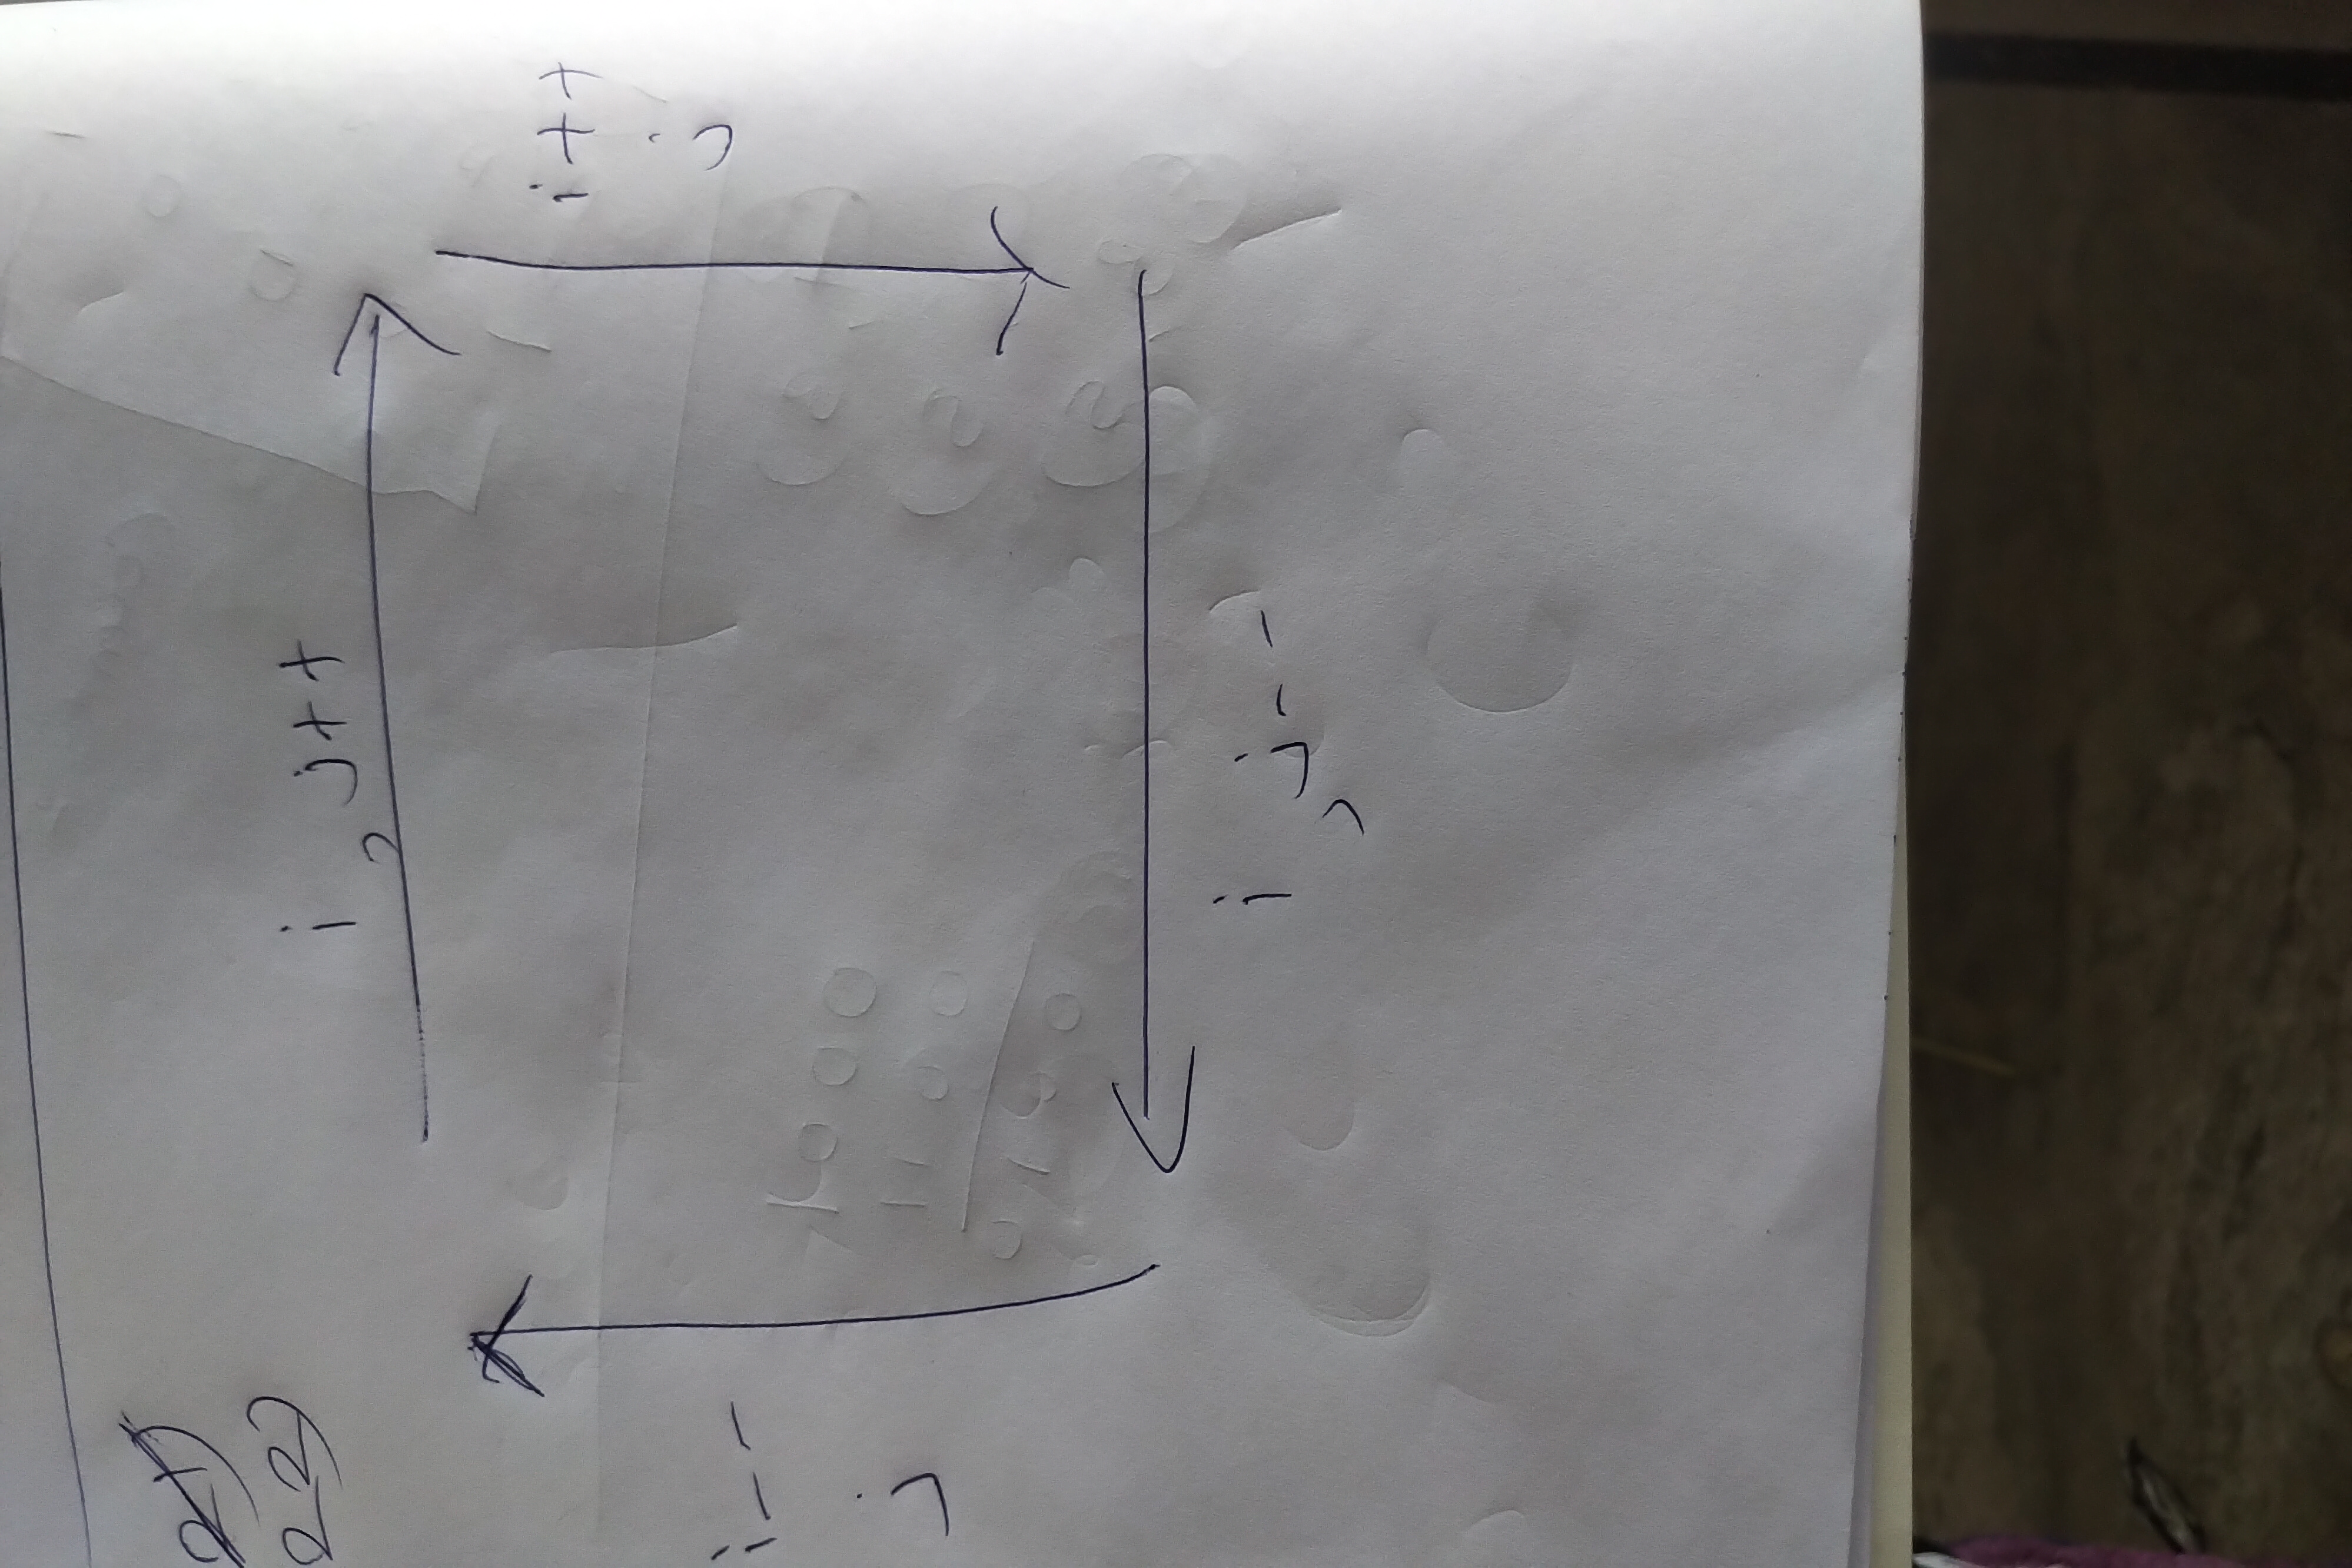 21)
22)
i, j++
i++
j
i--
j
i, j--